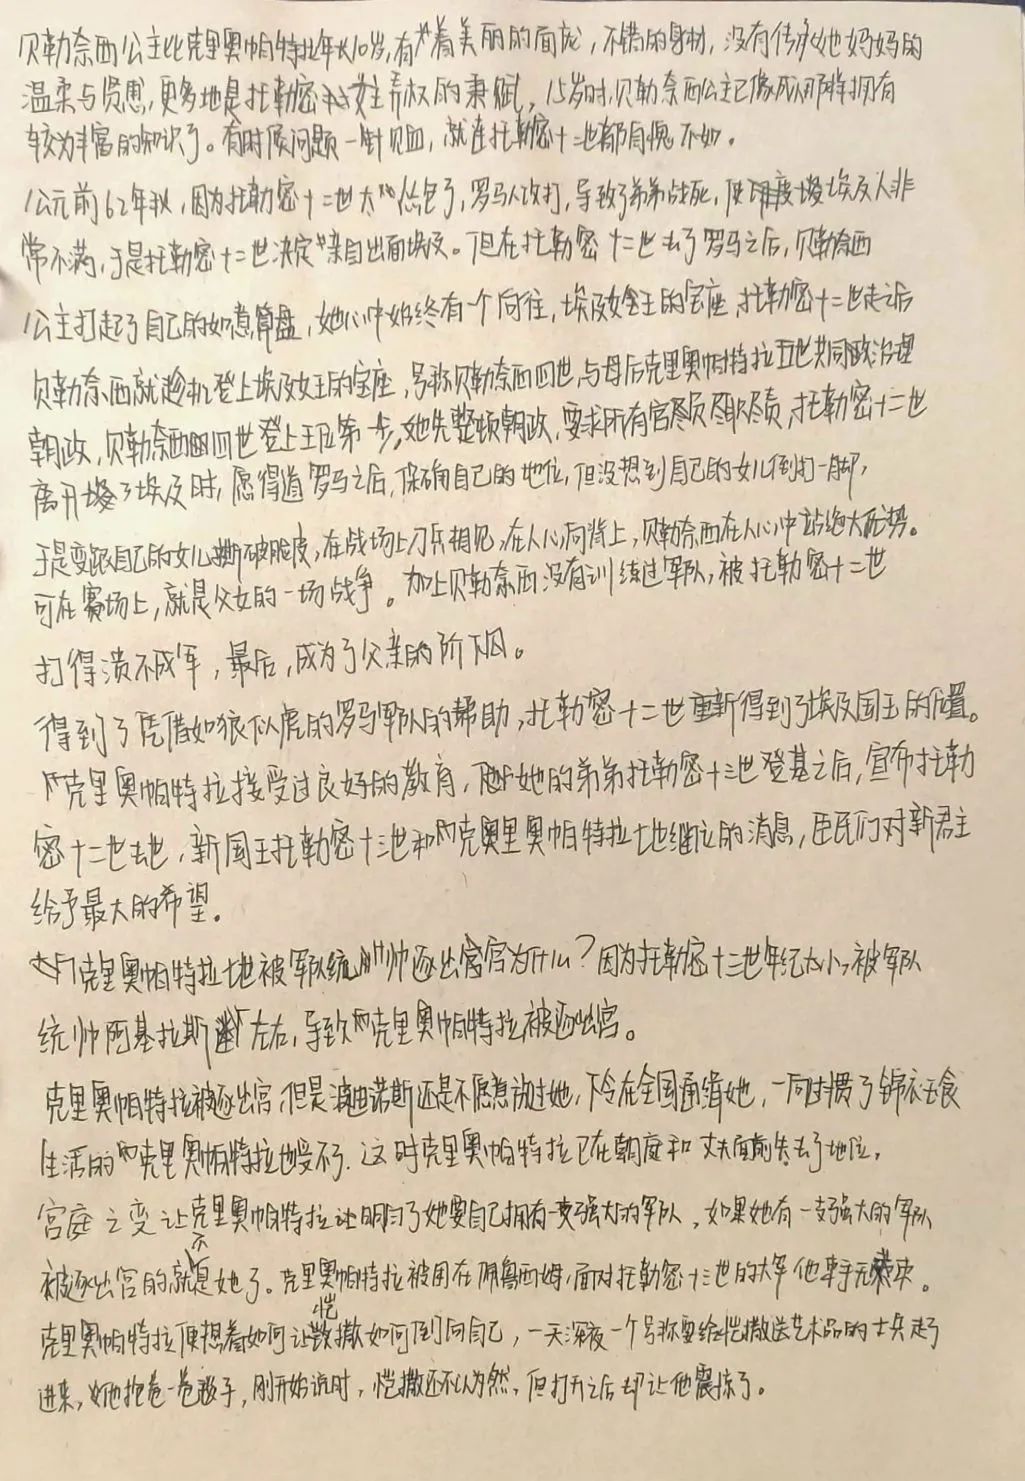 贝勒奈西公主比克里奥帕特拉年长10岁,有着美丽的面庞,不错的身材,没有传承她妈妈的
温柔与贤惠,更多地是托勒密女主弄权的秉赋,15岁时,贝勒奈西公主已像成人那特拥有
较为丰富的知识了。有时候问题一针见血,就连托勒密十二世都自愧不如。
公元前62年秋,因为托勒密十二世太怂包了,罗马人攻打,导致了弟弟战死,使埃及人非
常不满,于是托勒密十二世决定亲自出面埃及。但在托勒密十二世去了罗马之后,贝勒奈西
公主打起了自己的如意算盘,她心中始终有一个向往,埃及女王的宝座,托勒密十二世走之后
贝勒奈西就趁机登上埃及女王的宝座,号称贝勒奈西四世,与母后克里奥帕特拉五世共同政治理
朝政,贝勒奈西四世登上王位第一步,她先整顿朝政,要求所有官员尽职尽责,托勒密十二世
离开了埃及时,愿得道罗马之后,保确自己的地位,但没想到自己的女儿倒打一脚,
于是变跟自己的女儿撕破脸皮,在战场上刀兵相见,在人心向背上,贝勒奈西在人心中占绝大优势。
可在赛场上,就是父女的一场战争。加上贝勒奈西没有训练过军队,被托勒密十二世
打得溃不成军,最后,成为了父亲的阶下囚。
得到了凭借如狼似虎的罗马军队的帮助,托勒密十二世重新得到了埃及国王的位置。
克里奥帕特拉接受过良好的教育,她的弟弟托勒密十三世登基之后,宣布托勒
密十二世去世,新国王托勒密十三世和克里奥帕特拉七世继位的消息,臣民们对新君主
给予最大的希望。
克里奥帕特拉七世被军队统帅逐出宫为什么?因为托勒密十三世年纪太小,被军队
统帅阿基拉斯左右,导致克里奥帕特拉被逐出宫。
克里奥帕特拉被逐出宫,但是波迪诺斯还是不愿意放过她,下令在全国通缉她,一向过惯了锦衣玉食
生活的克里奥帕特拉也受不了.这时克里奥帕特拉已在朝庭和丈夫面前失去了地位,
宫庭之变让克里奥帕特拉让明白了她要自己拥有一支强大的军队,如果她有一支强大的军队
被逐出宫的就不是她了。克里奥帕特拉被困在佩鲁西姆,面对托勒密十三世的大军他束手无策。
克里奥帕特拉便想着如何让恺撒如何倒向自己,一天深夜一个号称要给恺撒送艺术品的士兵走了
进来,她抱卷一卷毯子,刚开始说时,恺撒还不以为然,但打开之后却让他震惊了。